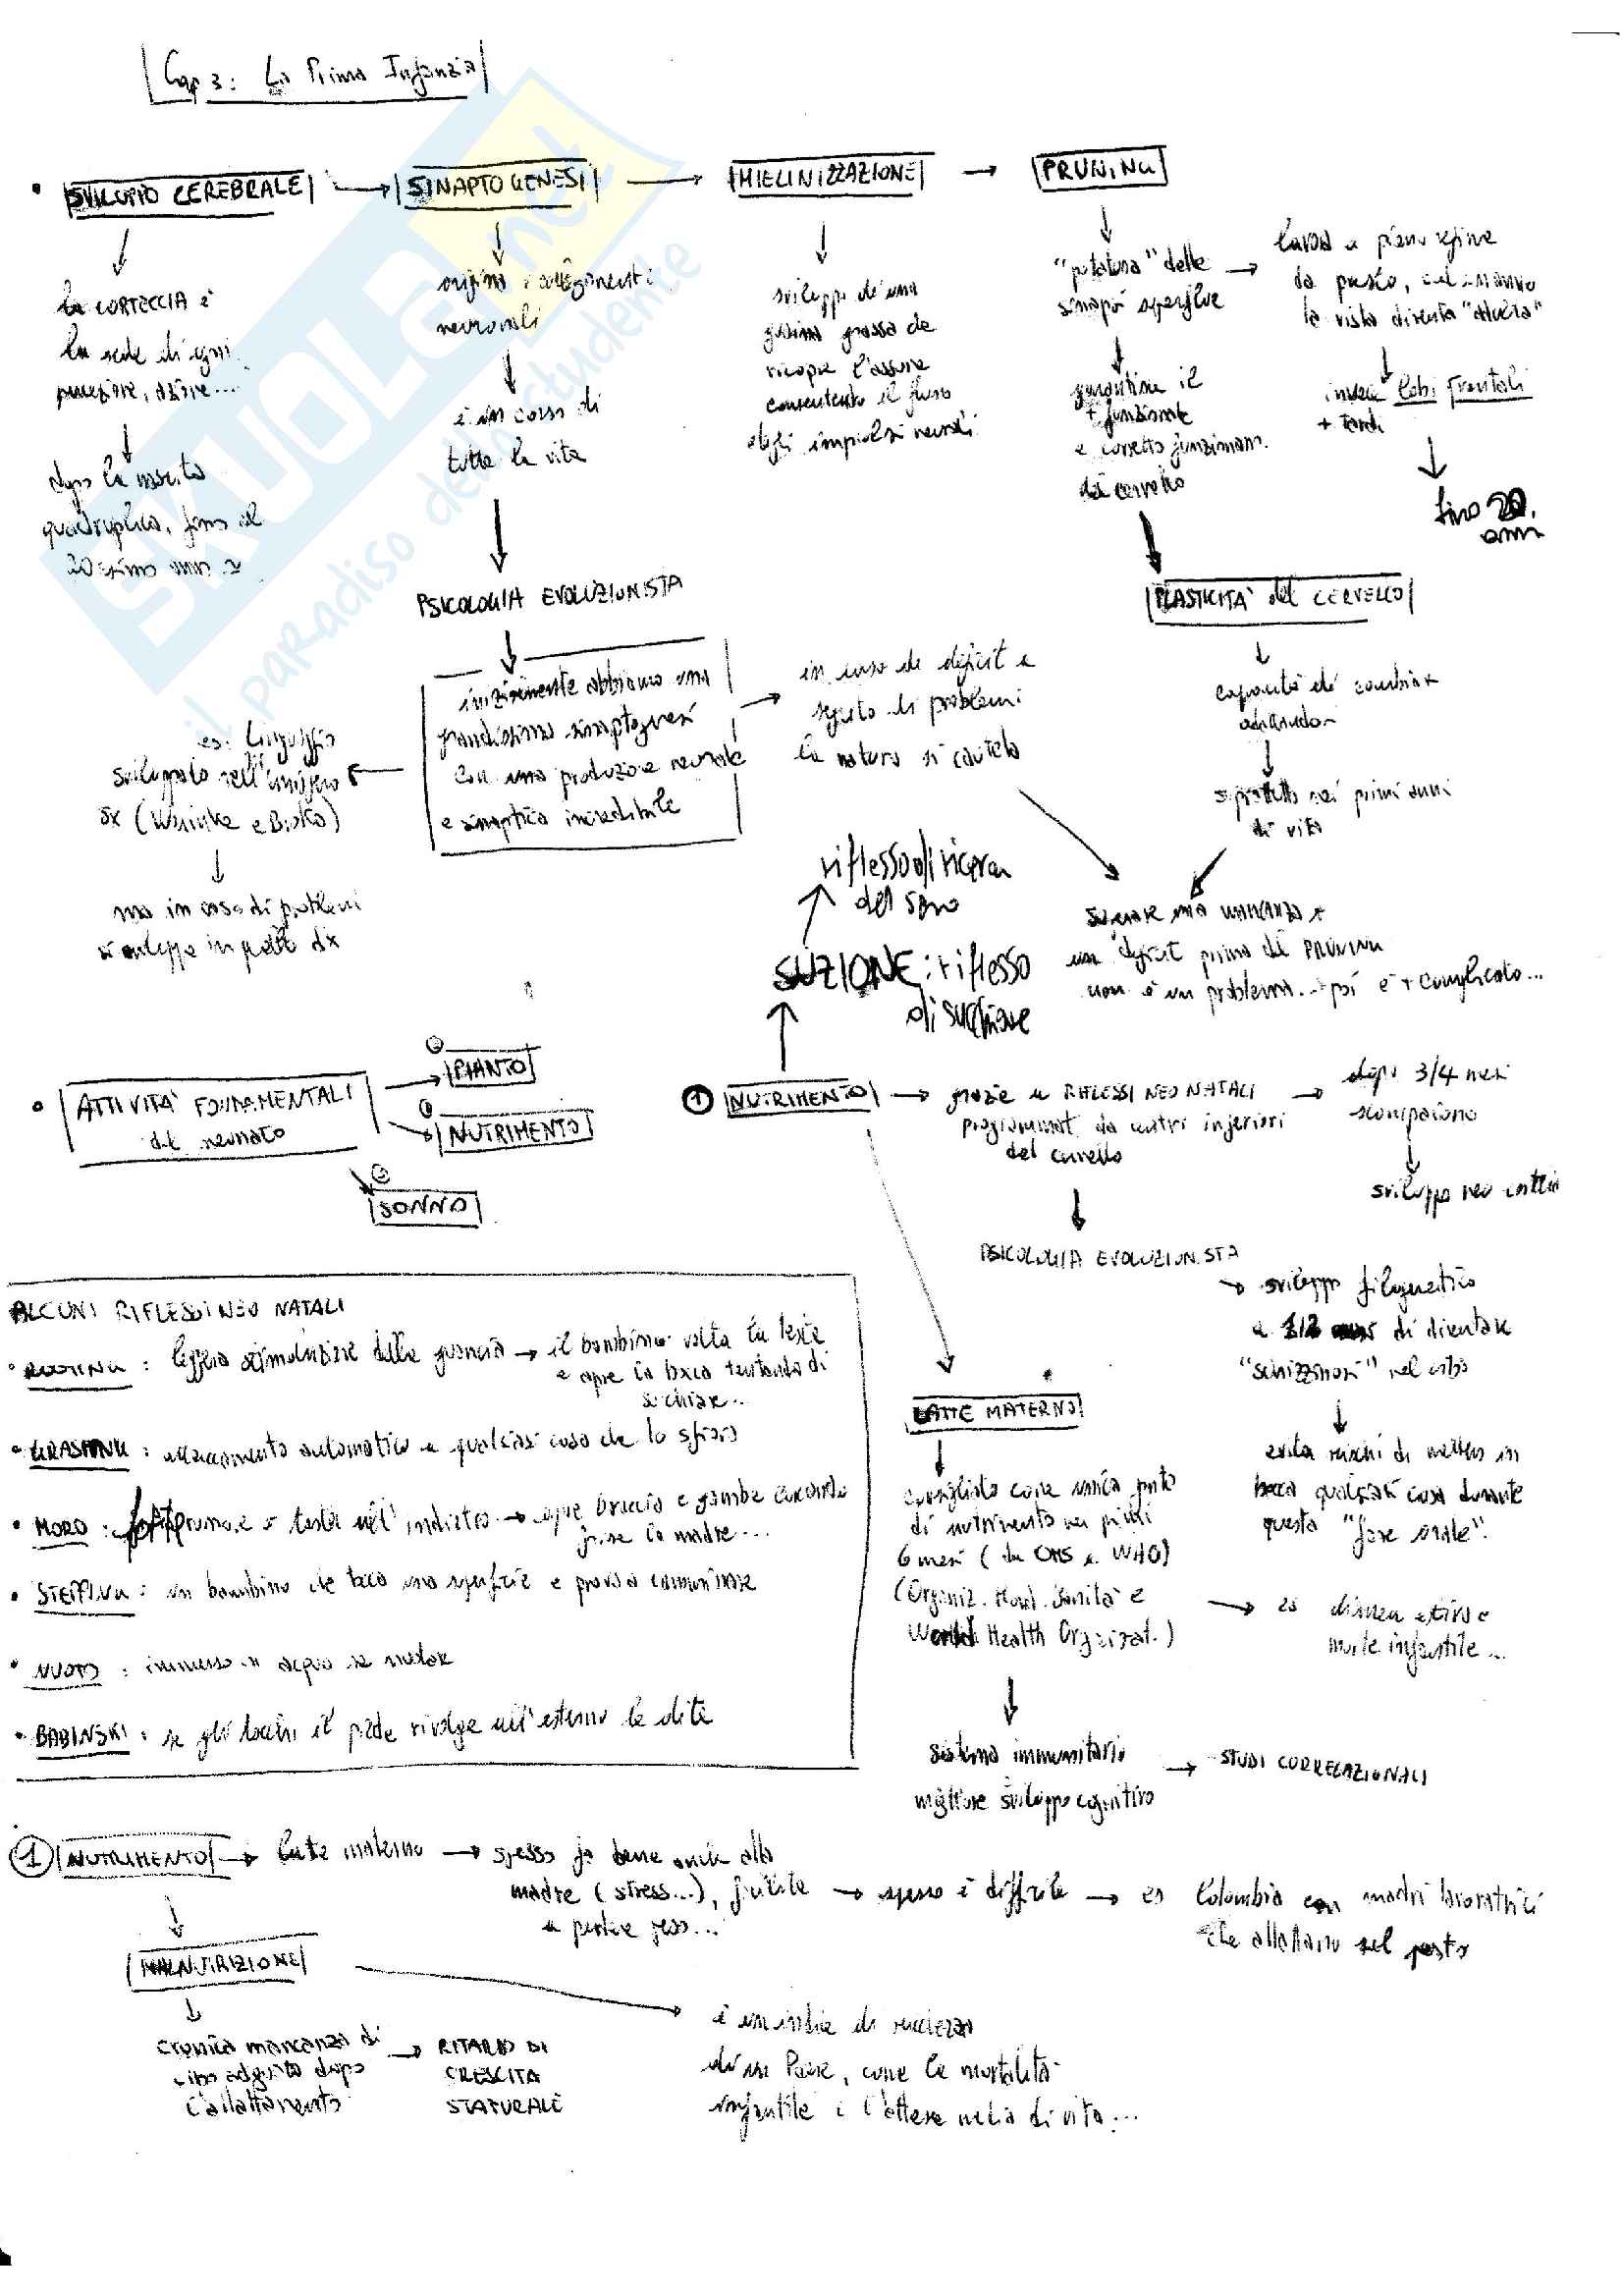 Cap 3: La Prima Infanzia
SVILUPPO CEREBRALE
SINAPTOGENESI
MIELINIZZAZIONE
PRUNING
la CORTECCIA è
la sede di ogni
percezione, azione...
dopo la nascita
quadruplica, fino al
origina i collegamenti
neuronali
è in corso di
tutta la vita
PSICOLOGIA EVOLUZIONISTA
inizialmente abbiamo una
grandissima sinaptogenesi
con una produzione neurale
e sinaptica incredibile
es. linguaggio
sviluppato nell'emisfero
sx
ma in caso di problemi
si sviluppa in quello dx
in caso di deficit a
seguito di problemi
la natura si cautela
sviluppo di una
guaina grassa che
ricopre l'assone
consentendo il flusso
degli impulsi neurali
"potatura" delle
sinapsi superflue
garantisce il
+ funzionale
e corretto funzionam.
del cervello
lavora a pieno regime
da presto,
la vista diventa "adulta"
invece lobi frontali
+ tardi
fino 20
anni
PLASTICITA' del CERVELLO
capacità di cambiare
soprattutto nei primi anni
di vita
una mancanza
un deficit prima del PRUNING
non è un problema... poi è + complicato...
riflesso di ricerca
del seno
SUZIONE: riflesso
di succhiare
ATTIVITA' FONDAMENTALI
del neonato
PIANTO
NUTRIMENTO
SONNO
1 NUTRIMENTO
grazie a RIFLESSI NEO NATALI
programmat. da centri inferiori
del cervello
dopo 3/4 mesi
scompaiono
sviluppo neo
PSICOLOGIA EVOLUZIONISTA
sviluppo filogenetico
di diventare
"schizzinosi" nel cibo
evita rischi di mettere in
bocca qualsiasi cosa durante
questa "fase orale".
ALCUNI RIFLESSI NEO NATALI
ROOTING: leggera stimolazione della guancia → il bambino volta la testa
e apre la bocca tentando di
succhiare...
GRASPING: attaccamento automatico a qualsiasi cosa che lo sfiora
MORO: testa all'indietro → apre braccia e gambe cercando
la madre...
STEPPING: un bambino che tocca una superficie e prova a camminare
NUOTO: immerso in acqua sa nuotare
BABINSKI: se gli tocchi il piede rivolge all'esterno le dita
LATTE MATERNO
consigliato come unica fonte
di nutrimento nei primi
6 mesi (da OMS e WHO)
(Organiz. Mond. Sanità e
World Health Organizat.)
es
morte infantile...
sistema immunitario
migliore sviluppo cognitivo
STUDI CORRELAZIONALI
1 NUTRIMENTO → latte materno → spesso fa bene anche alla
madre (stress...),
a perdere peso...
spesso è difficile → es Colombia con madri lavoratrici
che allattano sul posto
MALNUTRIZIONE
cronica mancanza di
cibo adeguato dopo
l'allattamento
RITARDO DI
CRESCITA
STATURALE
è un indice di ricchezza
di un Paese, come la mortalità
infantile e l'attesa media di vita...
SKUOLA.net
il paradiso dello studente